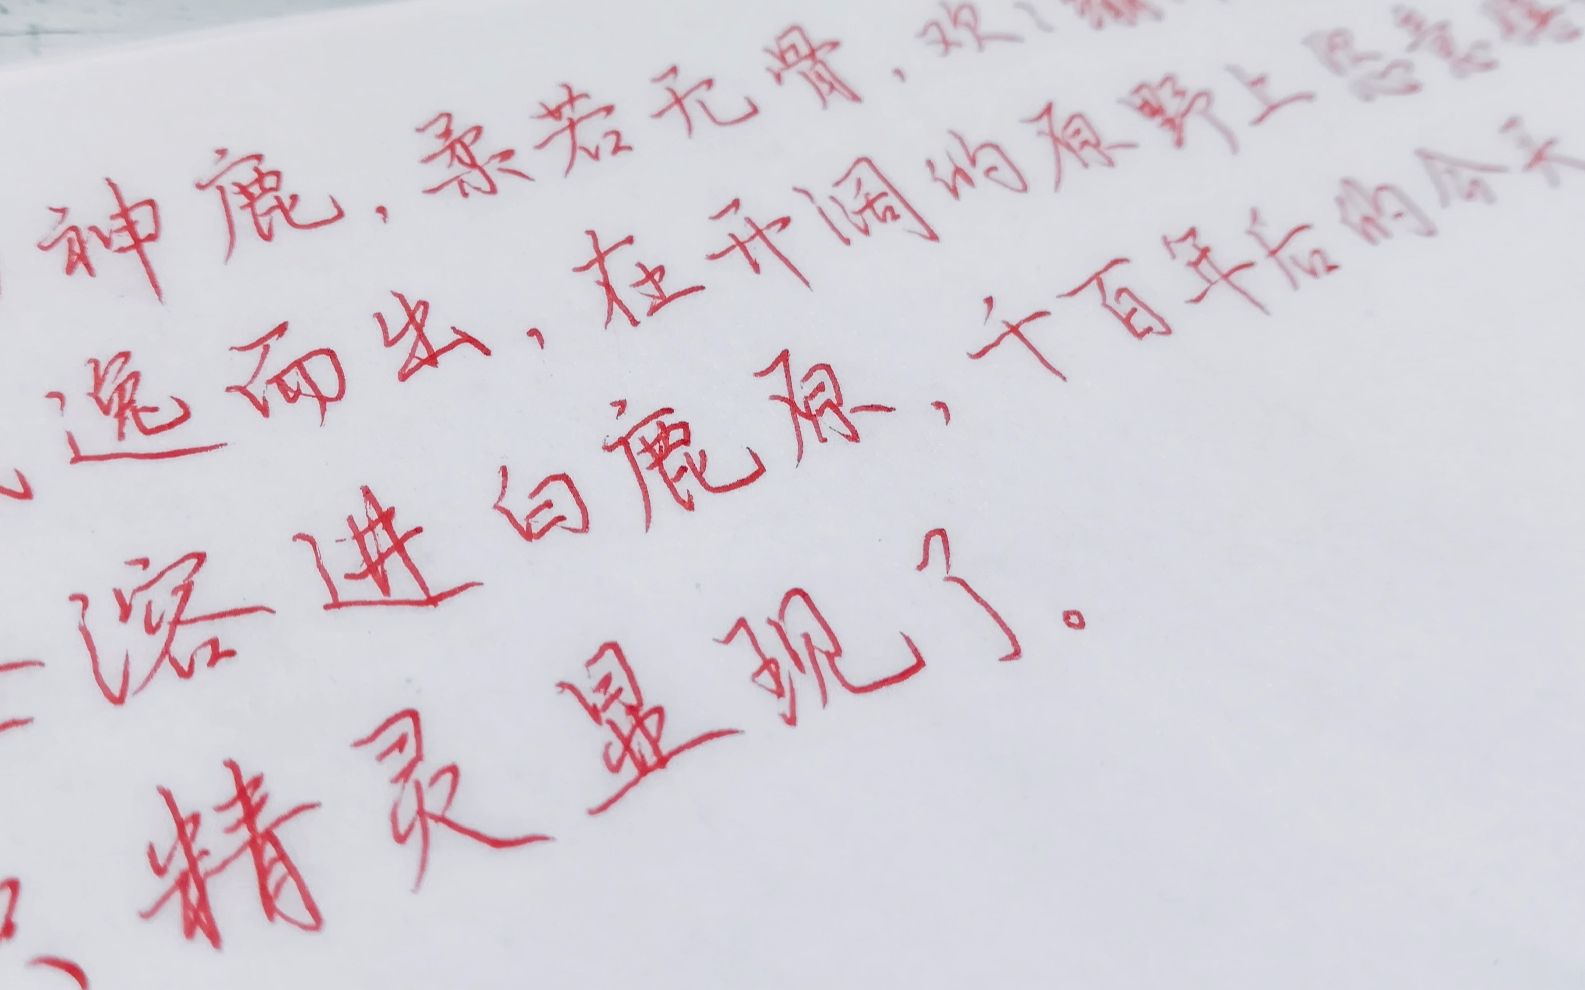 神鹿，柔若无骨，欢
逸而出，在开阔的原野上恣意
溶进白鹿原，千百年后的今天
精灵显现了。